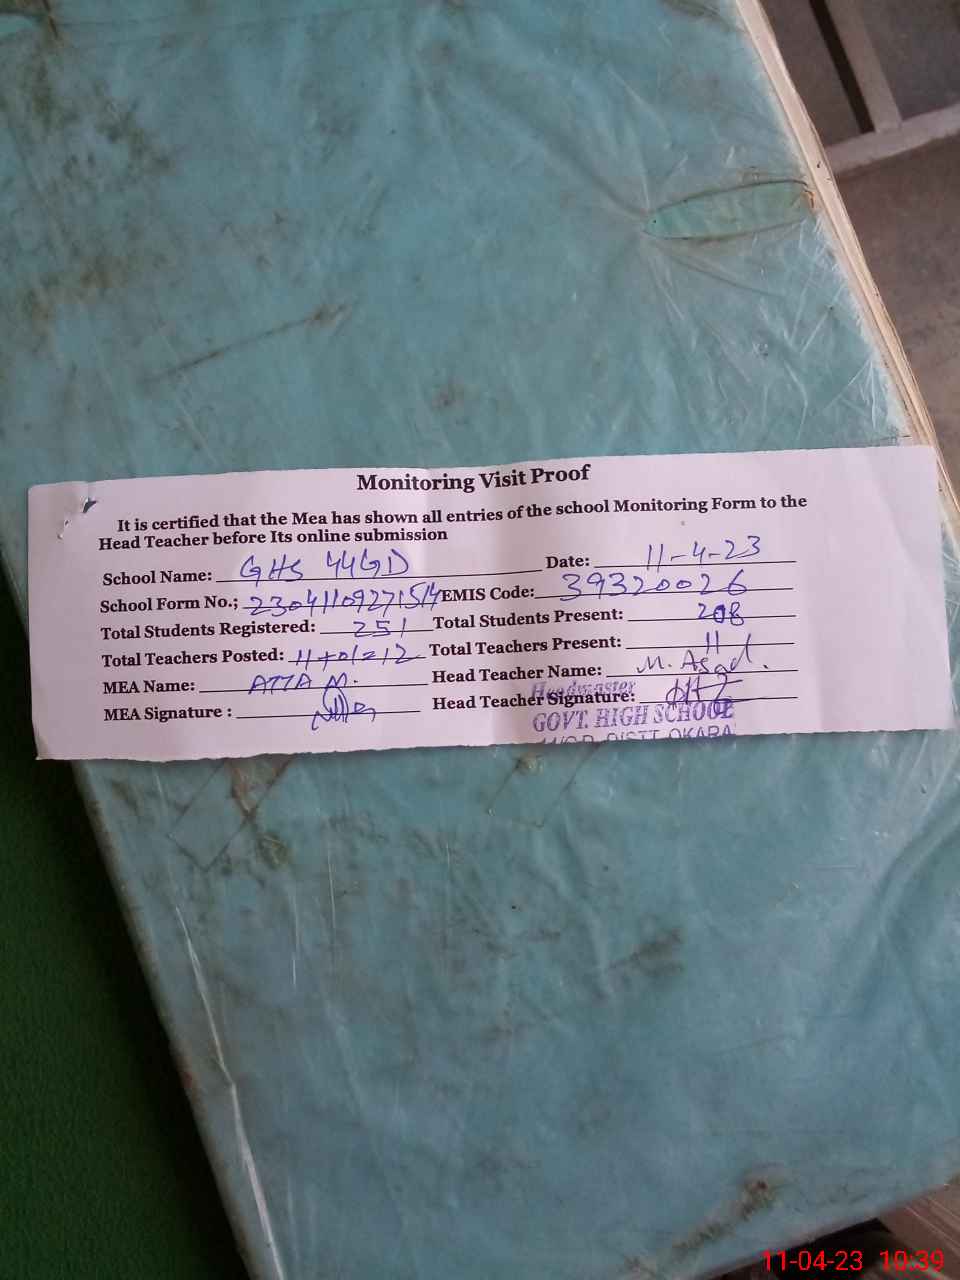 Monitoring Visit Proof
It is certified that the Mea has shown all entries of the school Monitoring Form to the
Head Teacher before Its online submission
School Name: GHS 44GD Date: 11-4-23
School Form No.; 23041109271514 EMIS Code: 39320026
Total Students Registered: 251 Total Students Present: 208
Total Teachers Posted: 11+01=12 Total Teachers Present: 11
MEA Name: ATTA M. Head Teacher Name: M. Asad.
MEA Signature : Head Teacher Signature:
Headmaster
GOVT. HIGH SCHOOL
DISTT OKARA
11-04-23 10:39